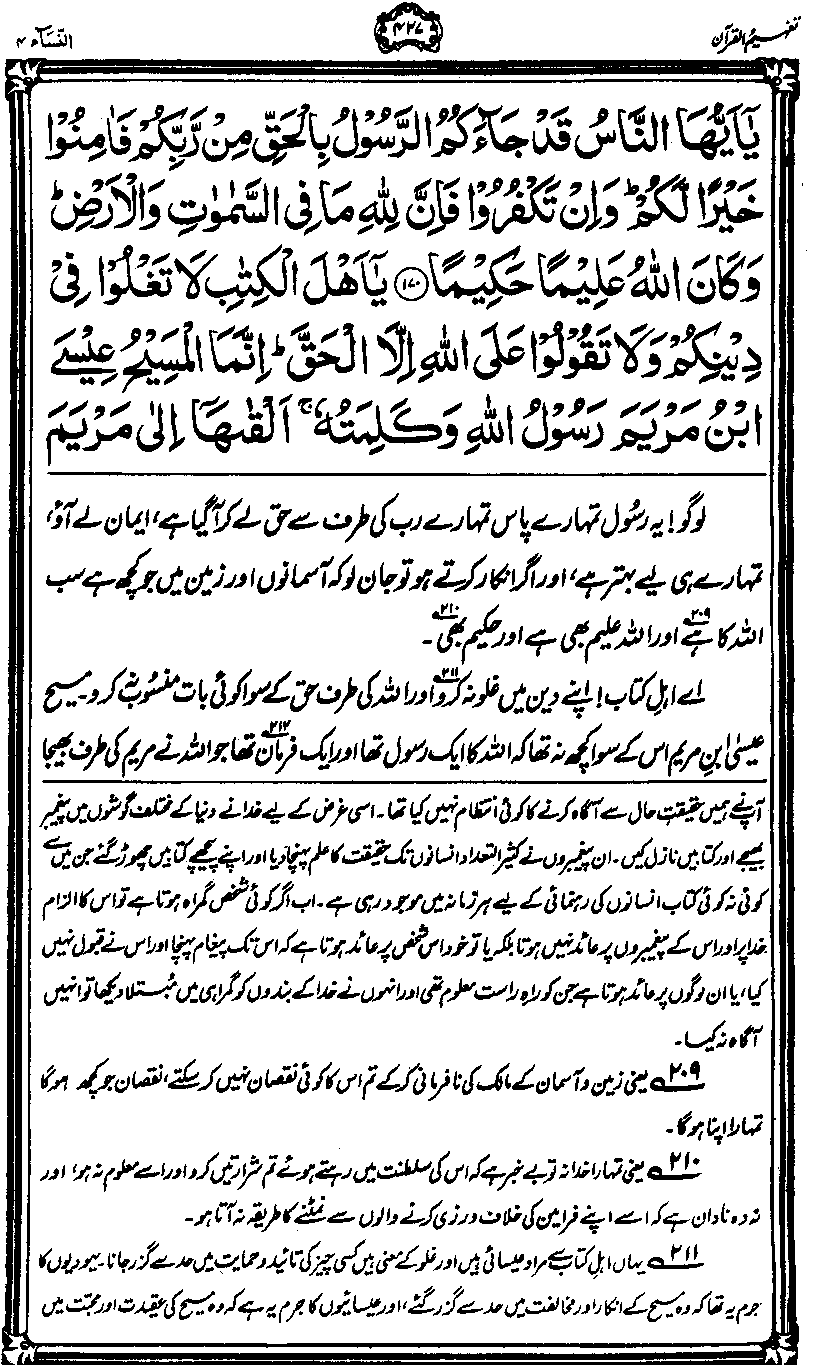 تفہیم القرآن
۴۲۷
النساء ۴
يٰۤاَيُّهَا النَّاسُ قَدْ جَآءَكُمُ الرَّسُوْلُ بِالْحَقِّ مِنْ رَّبِّكُمْ فَاٰمِنُوْا
خَيْرًا لَّكُمْ ؕ وَاِنْ تَكْفُرُوْا فَاِنَّ لِلّٰهِ مَا فِى السَّمٰوٰتِ وَالْاَرْضِ ؕ
وَكَانَ اللّٰهُ عَلِيْمًا حَكِيْمًا ﴿۱۷۰﴾ يٰۤاَهْلَ الْكِتٰبِ لَا تَغْلُوْا فِىْ
دِيْنِكُمْ وَلَا تَقُوْلُوْا عَلَى اللّٰهِ اِلَّا الْحَقَّ ؕ اِنَّمَا الْمَسِيْحُ عِيْسَى
ابْنُ مَرْيَمَ رَسُوْلُ اللّٰهِ وَكَلِمَتُهٗ ۚ اَلْقٰهَاۤ اِلٰى مَرْيَمَ
لوگو! یہ رسُول تمہارے پاس تمہارے رب کی طرف سے حق لے کر آگیا ہے، ایمان لے آؤ،
تمہارے ہی لیے بہتر ہے، اور اگر انکار کرتے ہو تو جان لو کہ آسمانوں اور زمین میں جو کچھ ہے سب
اللہ کا ہے ۲۰۹ اور اللہ علیم بھی ہے اور حکیم بھی ۲۱۰۔
اے اہلِ کتاب! اپنے دین میں غلو نہ کرو ۲۱۱ اور اللہ کی طرف حق کے سوا کوئی بات منسُوب نہ کرو۔ مسیح
عیسیٰ ابنِ مریم اس کے سوا کچھ نہ تھا کہ اللہ کا ایک رسول تھا اور ایک فرمان ۲۱۲ تھا جو اللہ نے مریم کی طرف بھیجا
آپنے ہمیں حقیقتِ حال سے آگاہ کرنے کا کوئی انتظام نہیں کیا تھا۔ اسی غرض کے لیے خدا نے دنیا کے مختلف گوشوں میں پیغمبر
بھیجے اور کتابیں نازل کیں۔ ان پیغمبروں نے کثیر التعداد انسانوں تک حقیقت کا علم پہنچا دیا اور اپنے پیچھے کتابیں چھوڑ گئے جن میں سے
کوئی نہ کوئی کتاب انسانوں کی رہنمائی کے لیے ہر زمانہ میں موجود رہی ہے۔ اب اگر کوئی شخص گمراہ ہوتا ہے تو اس کا الزام
خدا پر اور اس کے پیغمبروں پر عائد نہیں ہوتا بلکہ یا تو خود اس شخص پر عائد ہوتا ہے کہ اس تک پیغام پہنچا اور اس نے قبول نہیں
کیا، یا ان لوگوں پر عائد ہوتا ہے جن کو راہِ راست معلوم تھی اور انہوں نے خدا کے بندوں کو گمراہی میں مُبتلا دیکھا تو انہیں
آگاہ نہ کیا۔
۲۰۹ یعنی زمین و آسمان کے مالک کی نافرمانی کر کے تم اس کا کوئی نقصان نہیں کر سکتے، نقصان جو کچھ ہوگا
تمہارا اپنا ہوگا۔
۲۱۰ یعنی تمہارا خدا نہ تو بے خبر ہے کہ اس کی سلطنت میں رہتے ہوئے تم شرارتیں کرو اور اسے معلوم نہ ہو، اور
نہ وہ نادان ہے کہ اسے اپنے فرامین کی خلاف ورزی کرنے والوں سے نمٹنے کا طریقہ نہ آتا ہو۔
۲۱۱ یہاں اہلِ کتاب سے مراد عیسائی ہیں اور غلو کے معنی ہیں کسی چیز کی تائید و حمایت میں حد سے گزر جانا۔ یہودیوں کا
جرم یہ تھا کہ وہ مسیح کے انکار اور مخالفت میں حد سے گزر گئے، اور عیسائیوں کا جرم یہ ہے کہ وہ مسیح کی عقیدت اور محبت میں